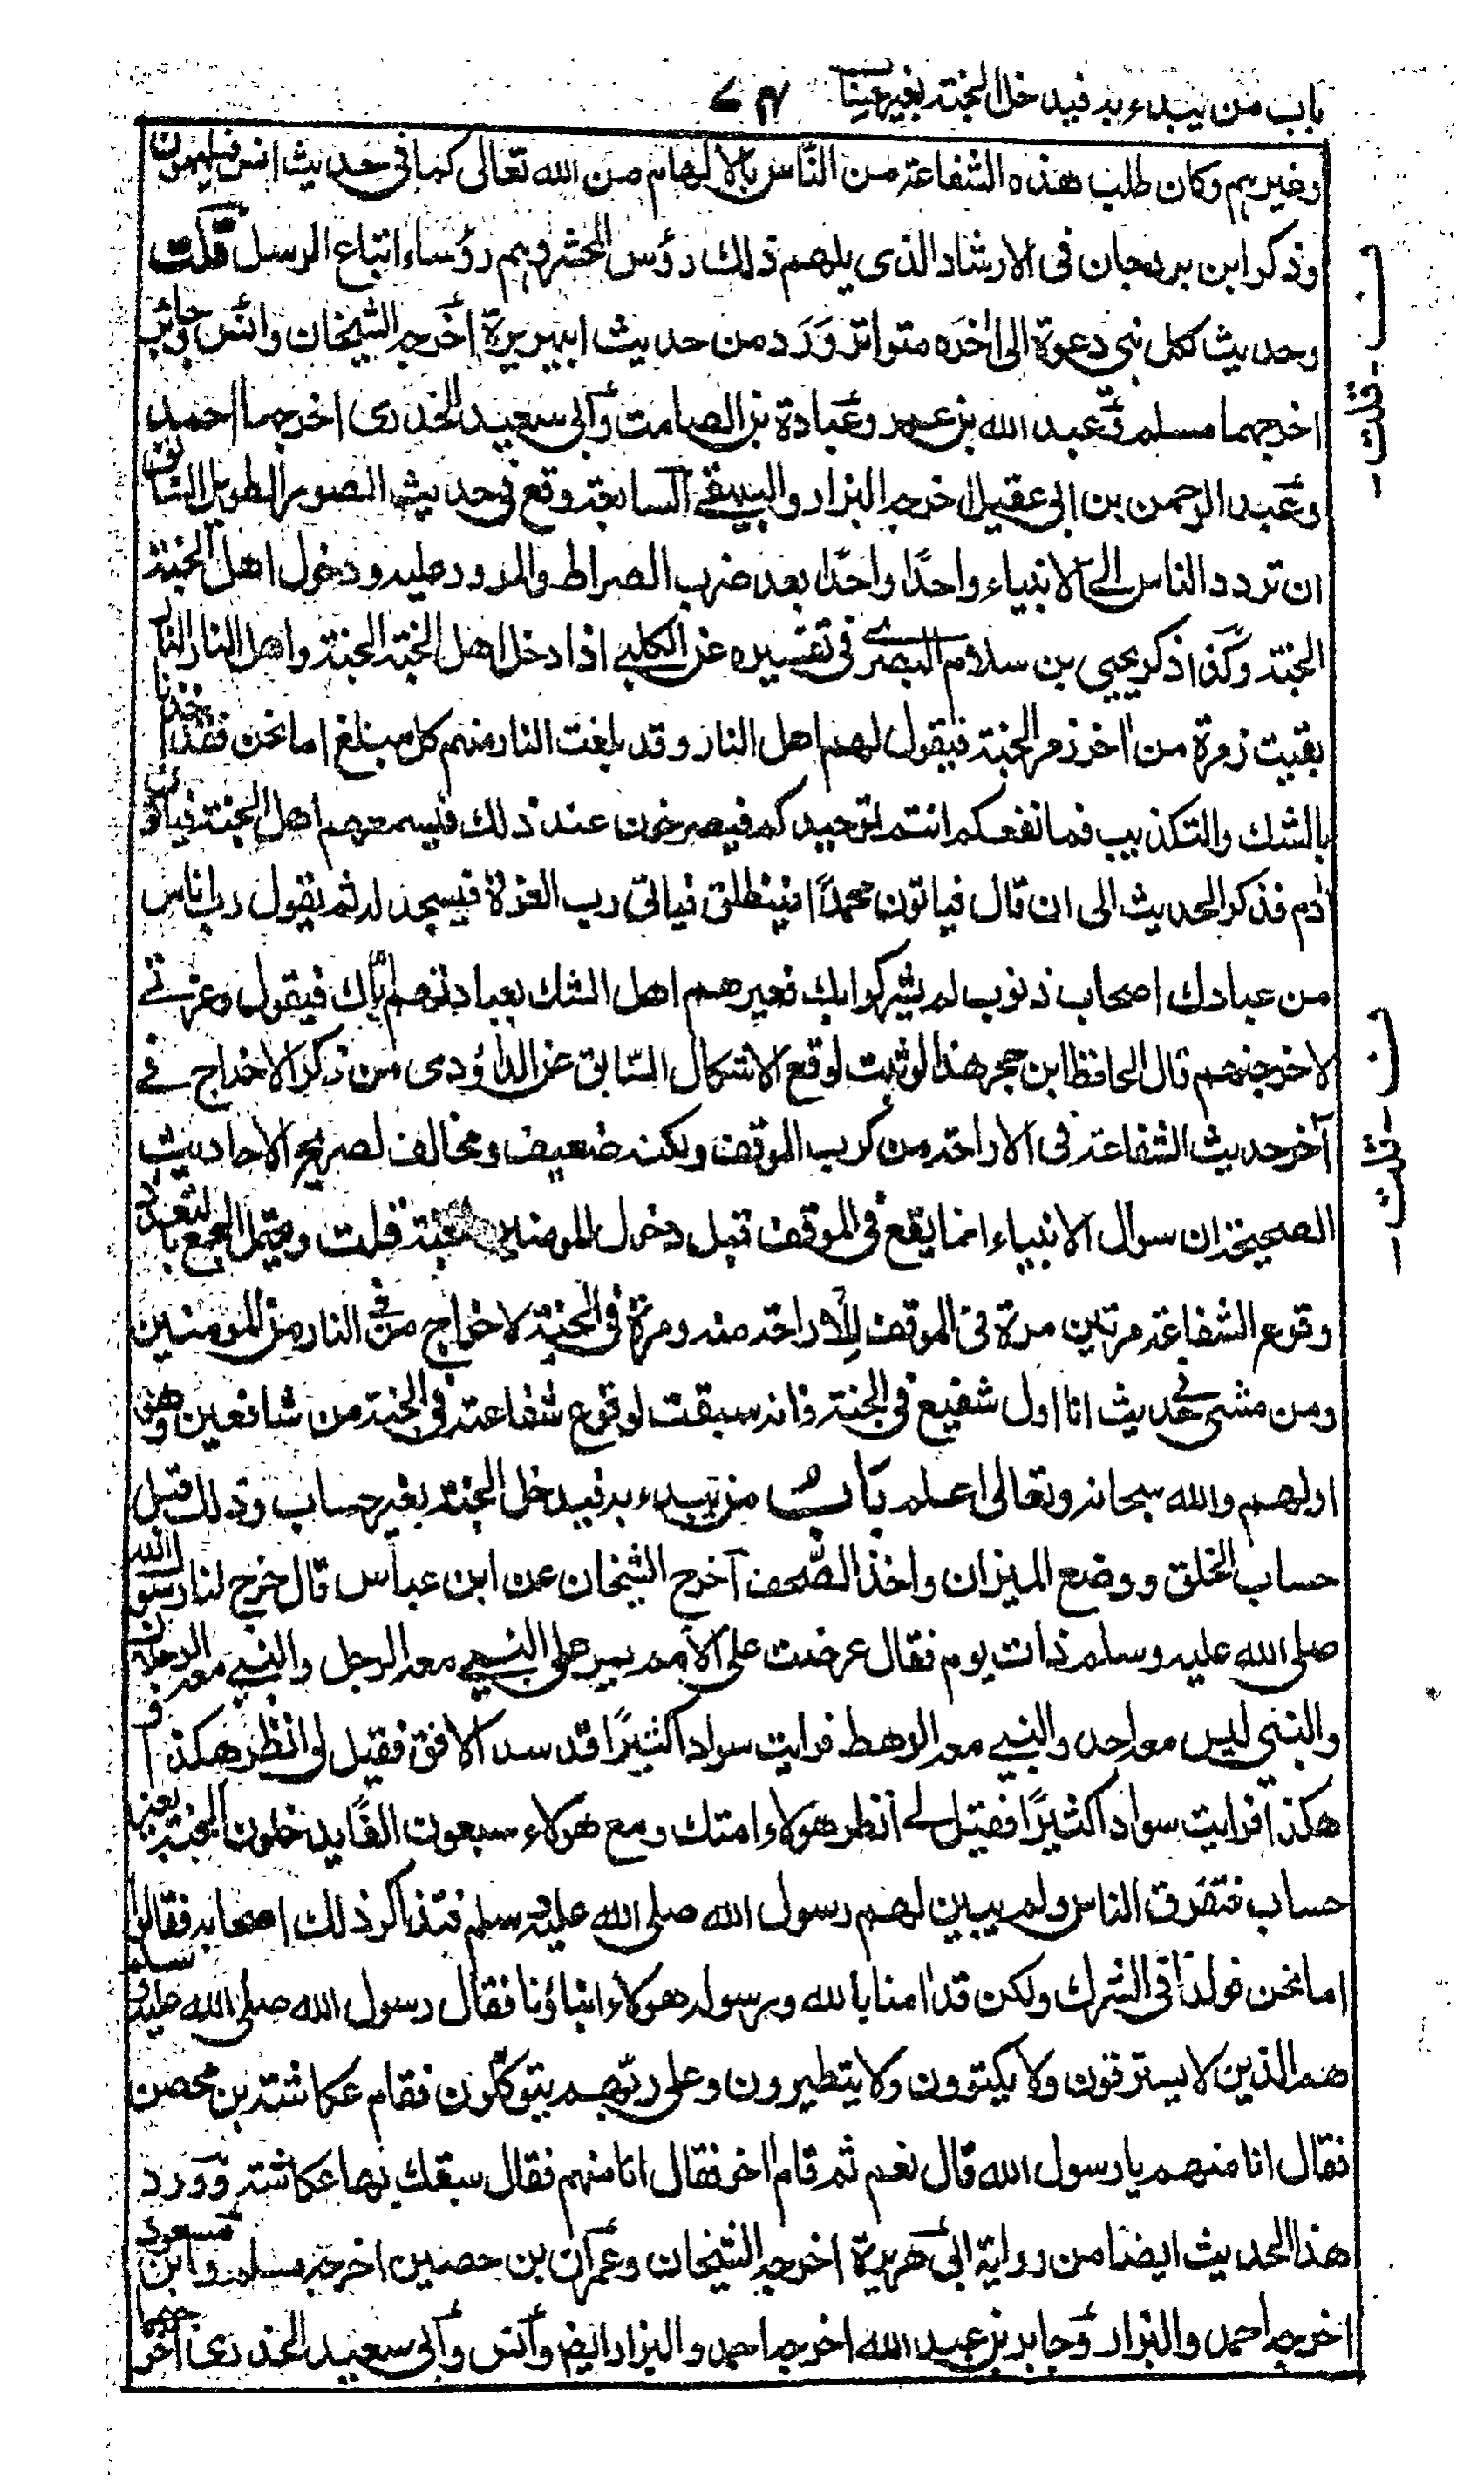 باب من يبدء به فيدخل الجنة بغير حساب ٤٧
وغيرهم وكان طلب هذه الشفاعة من الناس بالالهام من الله تعالى كما في حديث انس فيلهمون
وذكر ابن برجان في الارشاد الذي يلهم ذلك رؤس المحشر وهم رؤساء اتباع الرسل قلت
وحديث لكل نبي دعوة الى اٰخره متواتر وَرَد من حديث ابي هريرة اخرجه الشيخان وانس وجابر
اخرجهما مسلم وعبد الله بن عمر وعبادة بن الصامت وابي سعيد الخدري اخرجهما احمد
وعبد الرحمن بن ابي عقيل اخرجه البزار والبيهقي السابعة وقع في حديث الصور الطويل السابق
ان تردد الناس الى الانبياء واحدًا واحدًا بعد ضرب الصراط والمرور عليه ودخول اهل الجنة
الجنة وكذا ذكر يحيى بن سلام البصري في تفسيره عن الكلبي اذا دخل اهل الجنة الجنة واهل النار النار
بقيت زمرة من اٰخر زمر الجنة فيقول لهم اهل النار وقد بلغت النار منهم كل مبلغ اما نحن فقد اخذنا
بالشك والتكذيب فما نفعكم انتم توحيدكم فيصرخون عند ذلك فيسمعهم اهل الجنة فياتون
اٰدم فذكر الحديث الى ان قال فياتون محمدًا فينطلق فياتي رب العزة فيسجد له ثم يقول رب اناس
من عبادك اصحاب ذنوب لم يشركوا بك فعيرهم اهل الشك بعبادتهم اياك فيقول وعزتي
لاخرجنهم قال الحافظ ابن حجر هذا لو ثبت لوقع الاشكال السابق عن الداؤدي من ذكر الاخراج في
آخر حديث الشفاعة في الاراحة من كرب الموقف ولكنه ضعيف ومخالف لصريح الاحاديث
الصحيحة ان سوال الانبياء انما يقع في الموقف قبل دخول المومنين الجنة قلت ويحتمل الجمع بتعدد
وقوع الشفاعة مرتين مرة في الموقف للاراحة منه ومرة في الجنة لاخراج من في النار من المومنين
ومن مشى في حديث انا اول شفيع في الجنة فانه سبقت لوقوع شفاعته في الجنة من شافعين وهو
اولهم والله سبحانه وتعالى اعلم باب من يبدء به فيدخل الجنة بغير حساب وذلك قبل
حساب الخلق ووضع الميزان واخذ الصحف اخرج الشيخان عن ابن عباس قال خرج لنا رسول الله
صلى الله عليه وسلم ذات يوم فقال عرضت علي الامم يمر علي النبي معه الرجل والنبي معه الرجلان
والنبي ليس معه احد والنبي معه الرهط فرايت سوادا كثيرًا قد سد الافق فقيل لي انظر هكذا و
هكذا فرايت سوادا كثيرًا فقيل لي انظر هؤلاء امتك ومع هولاء سبعون الفًا يدخلون الجنة بغير
حساب فتفرق الناس ولم يبين لهم رسول الله صلى الله عليه وسلم فتذاكر ذلك اصحابه فقالوا
اما نحن فولدنا في الشرك ولكن قد اٰمنا بالله وبرسوله هولاء ابناؤنا فقال رسول الله صلى الله عليه وسلم
هم الذين لا يسترقون ولا يكتوون ولا يتطيرون وعلى ربهم يتوكلون فقام عكاشة بن محصن
فقال انا منهم يا رسول الله قال نعم ثم قام اٰخر فقال انا منهم فقال سبقك بها عكاشة وورد
هذا الحديث ايضا من رواية ابي هريرة اخرجه الشيخان وعمران بن حصين اخرجه مسلم وابن مسعود
اخرجه احمد والبزار وجابر بن عبد الله اخرجه احمد والبزار ايضا وانس وابي سعيد الخدري اخرجهما
ف - قلت -
ف - قلت -